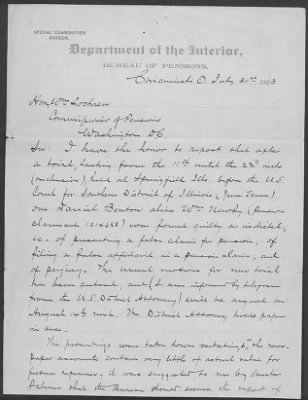 SPECIAL EXAMINATION
DIVISION.
Department of the Interior,
BUREAU OF PENSIONS,
Cincinnati O. July 31st, 1893
Hon Wm Lochren
Commissioner of Pensions
Washington DC
Sir: I have the honor to report that after
a trial, lasting from the 11th until the 22d inst
(inclusive), held at Springfield Ills. before the U.S.
Court for Southern District of Illinois (June Term)
one Daniel Benton alias Wm Newby (Pension
claimant 1014688) was found guilty as indicted,
i.e. of presenting a false claim for pension, of
filing a false affidavit in a pension claim, and
of perjury. The usual motion for new trial
has been entered, and (I am informed by telegram
from the U.S. District Attorney) will be argued on
August 14th next. The District Attorney has papers
in case.
The proceedings were taken down
paper accounts contain very little of actual value for
future reference, it was suggested to me by Senator
that the Bureau should secure the report of